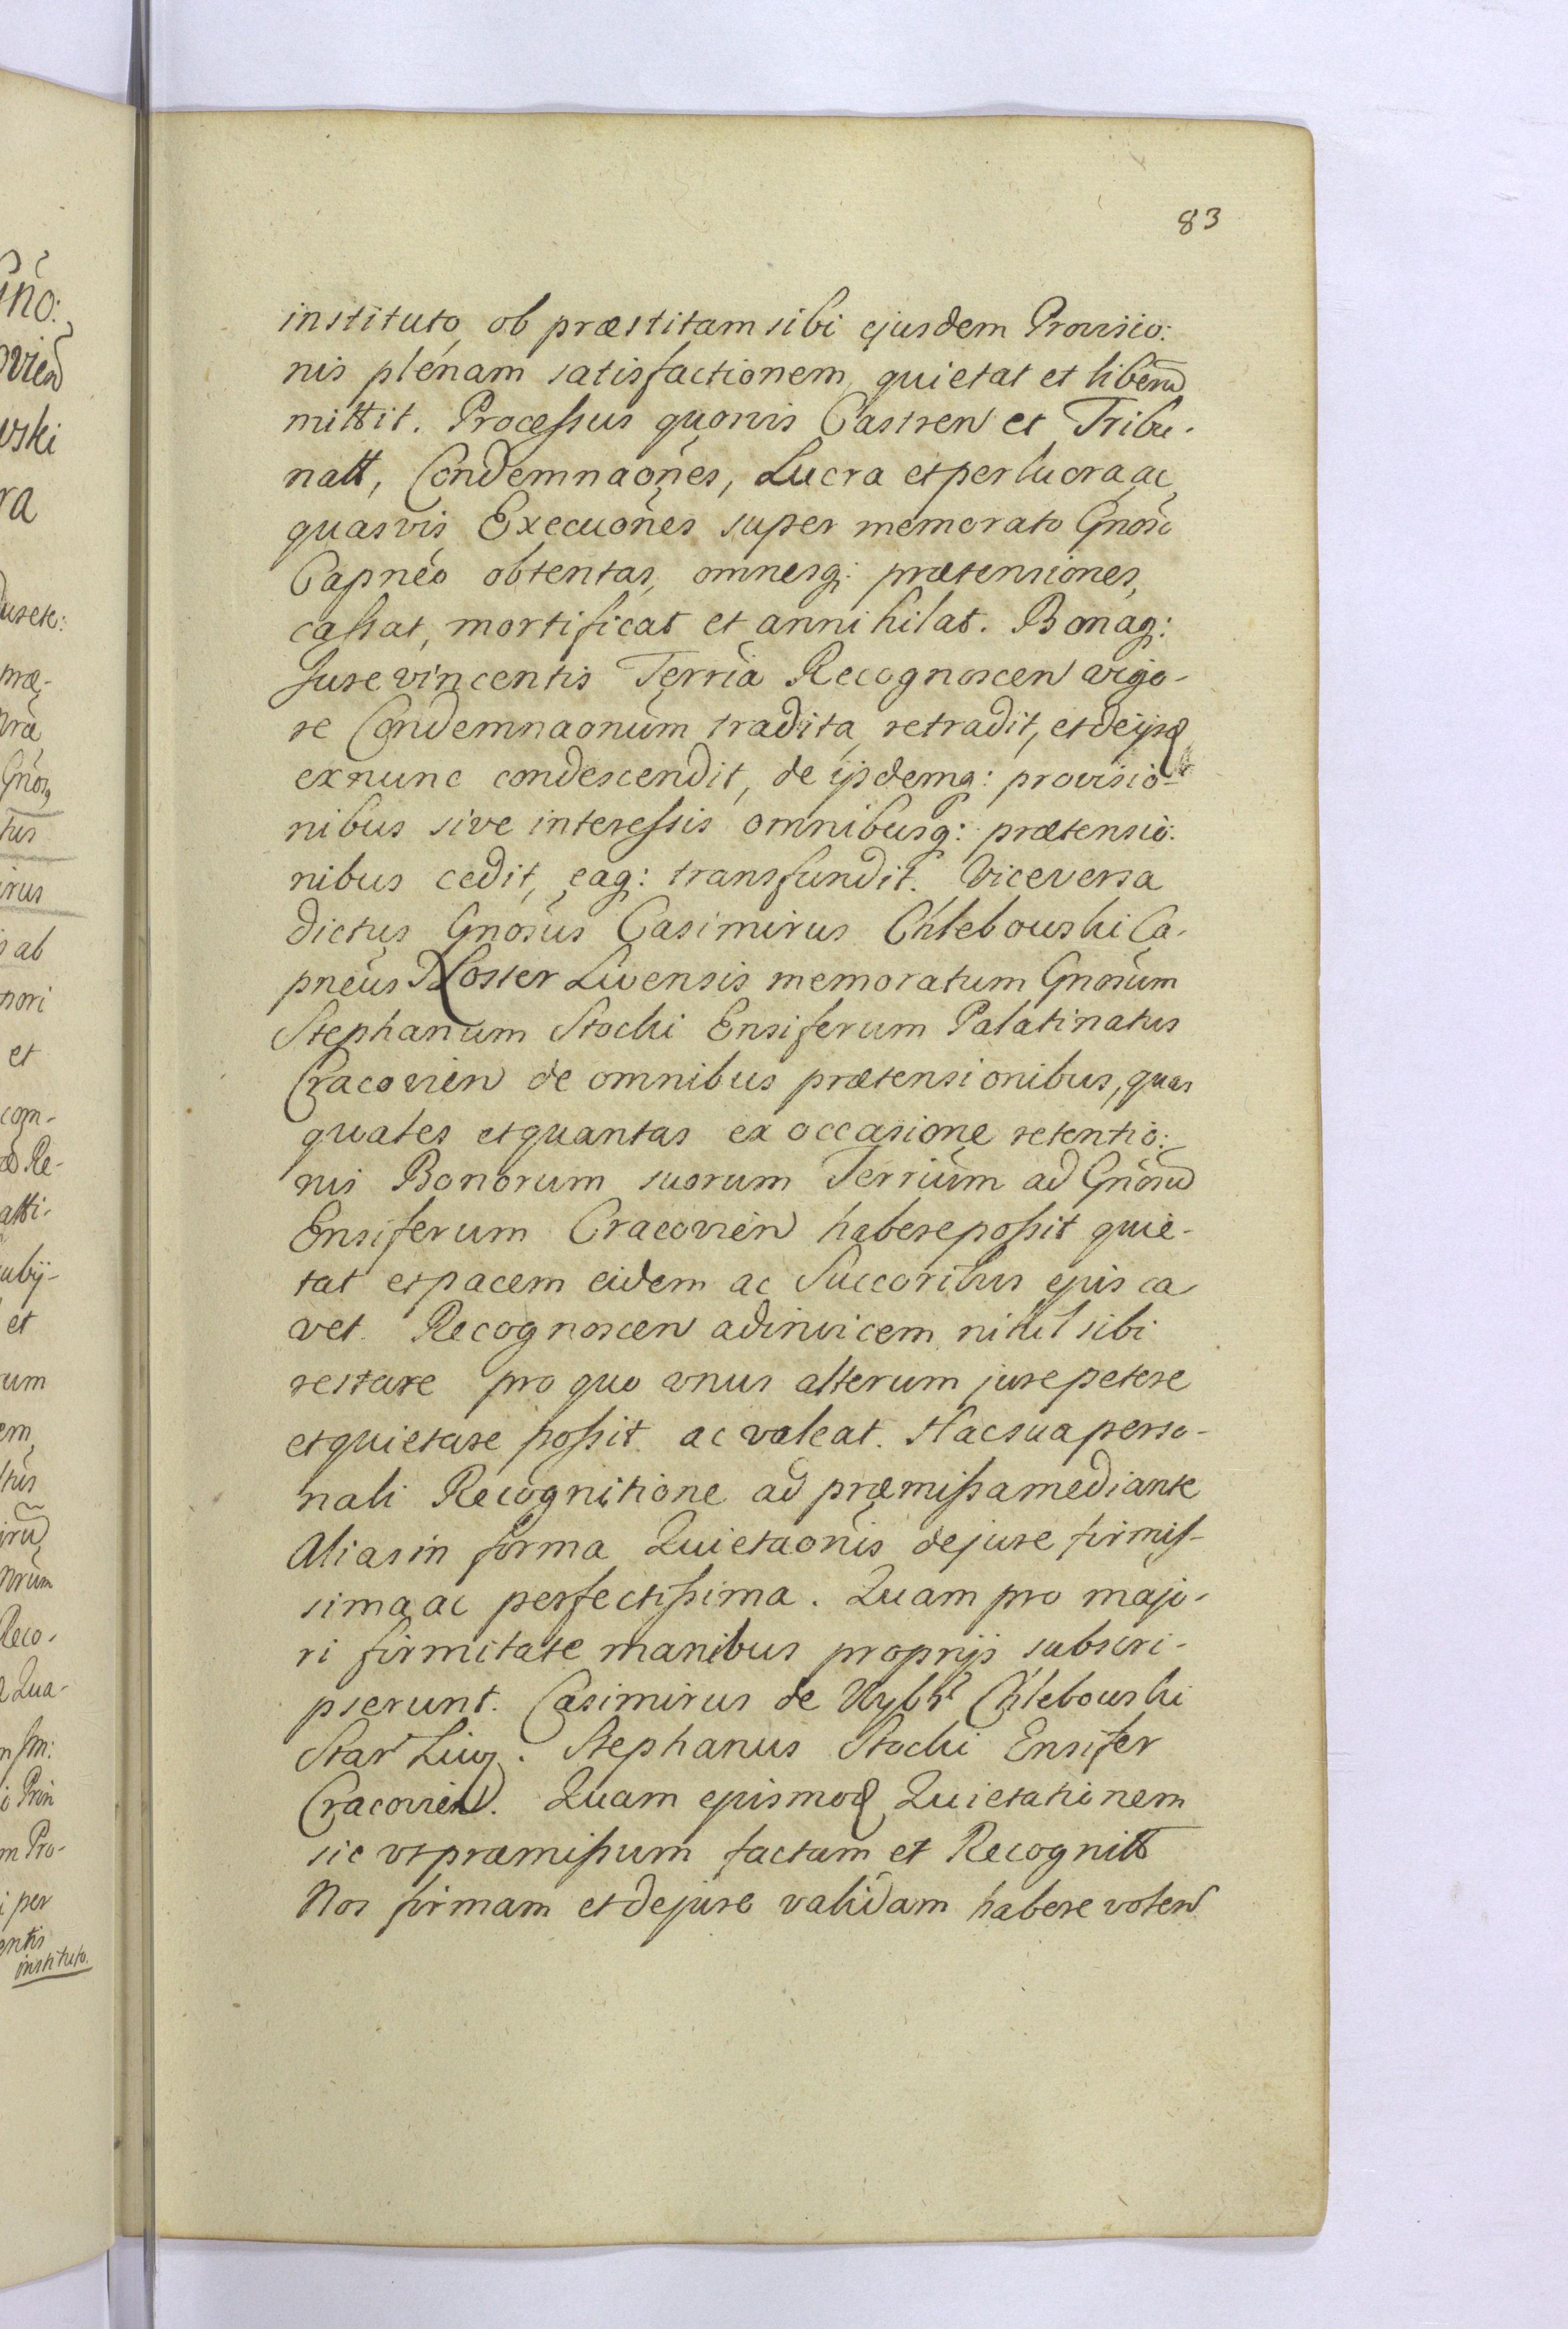 83
instituto, ob præstitam sibi ejusdem Provisio:
nis plenam satisfactionem, quietat et liberu
mittit. Processus quovis Castren et Tribu-
natt, Condemnaones, Lucra et perlucra, ac
quasvis Execuones super memorato Gnoso
Capneo obtentas, omnesq: prætensiones,
cassat, mortificat et annihilat. Bonaq:
Jure vincentis Terria Recognoscen vigo-
re Condemnaonum tradita, retradit, et de ijsd
exnunc condescendit, de ijsdemq: provisio-
nibus sive interessis omnibusq: prætensio:
nibus cedit, eaq: transfundit. Viceversa
dictus Gnosus Casimirus Chlebowski Ca-
pneus Noster Livensis memoratum Gnosum
Stephanum Stocki Ensiferum Palatinatus
Cracovien de omnibus prætensionibus, quas
quales et quantas ex occasione retentio:
nis Bonorum suorum Terrium ad Gnosu
Ensiferum Cracovien habere possit quie-
tat et pacem eidem ac Succoribus ejus ca
vet. Recognoscen adinvicem nihil sibi
restare pro quo unus alterum jure petere
et quietare possit ac valeat. Hac sua perso-
nali Recognitione ad præmissa mediante
Alias in forma Quietaonis de jure firmis-
sima, ac perfectissima. Quam pro majo-
ri firmitate manibus proprijs subscri-
pserunt. Casimirus de Chlebowski
Star Liw. Stephanus Stocki Ensifer
Cracovien. Quam ejusmod Quietationem
sic ut præmissum factam et Recognitt
Nos firmam et de jure validam habere volen